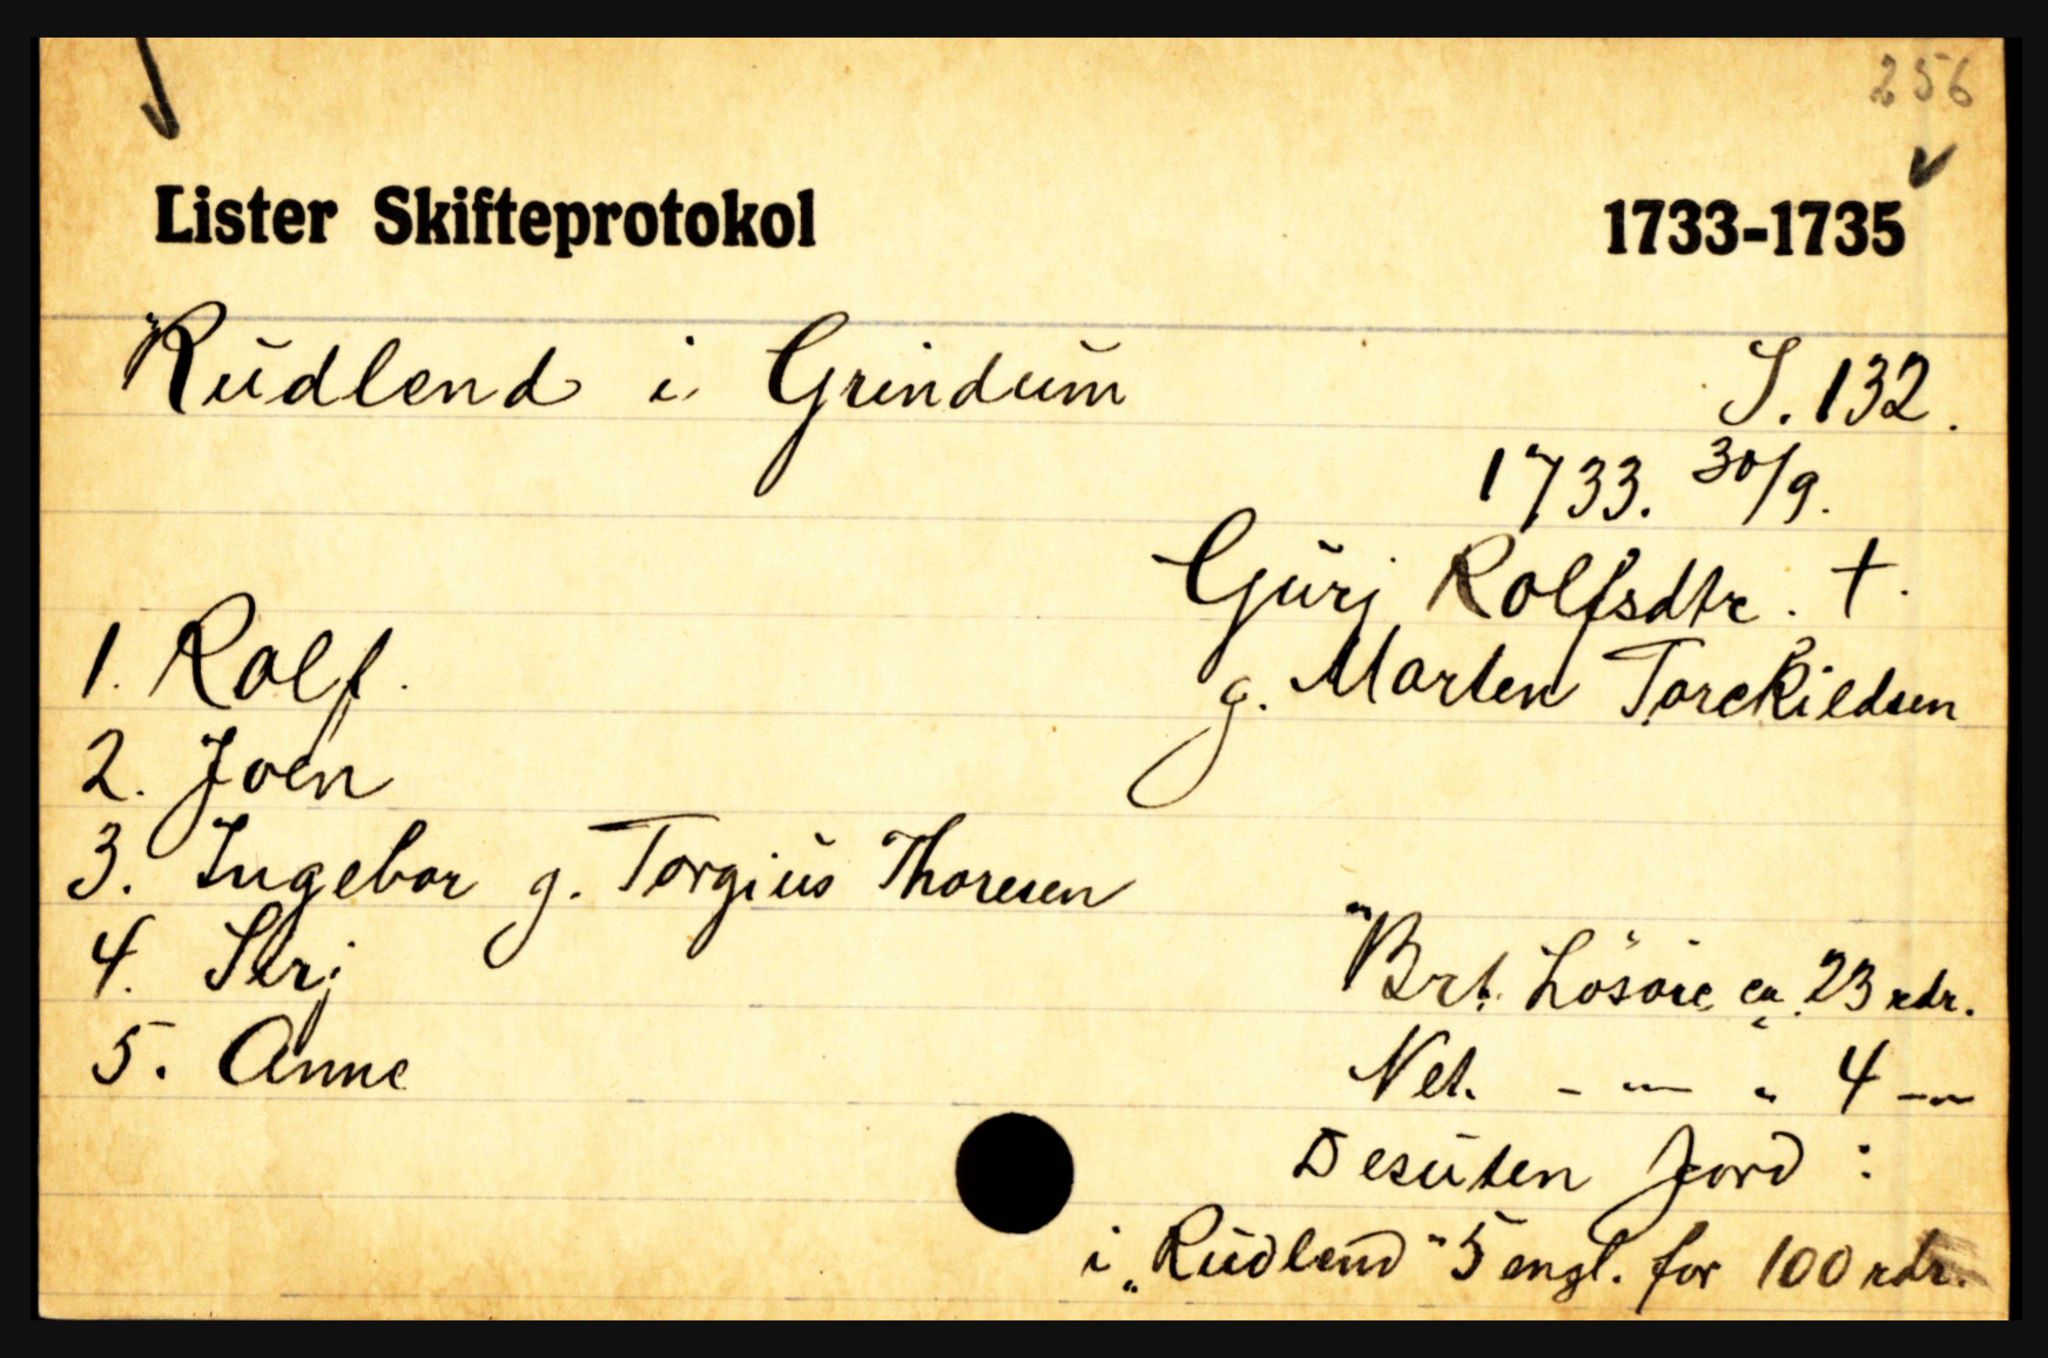 256
Lister Skifteprotokol 1733-1735
Rudlend i Grindum S. 132.
1733. 30/9.
Gurj Rolfsdtr. †.
1. Rolf.
g. Marten Torckildsen
2. Joen
3. Ingebor g. Torgius Thoresen
4. Serj
"Brt. Lösöre ca. 23 rdr.
5. Anne
Net. - — " 4 —
Desuten Jord :
i „Rudlend" 5 engl. for 100 rdr.